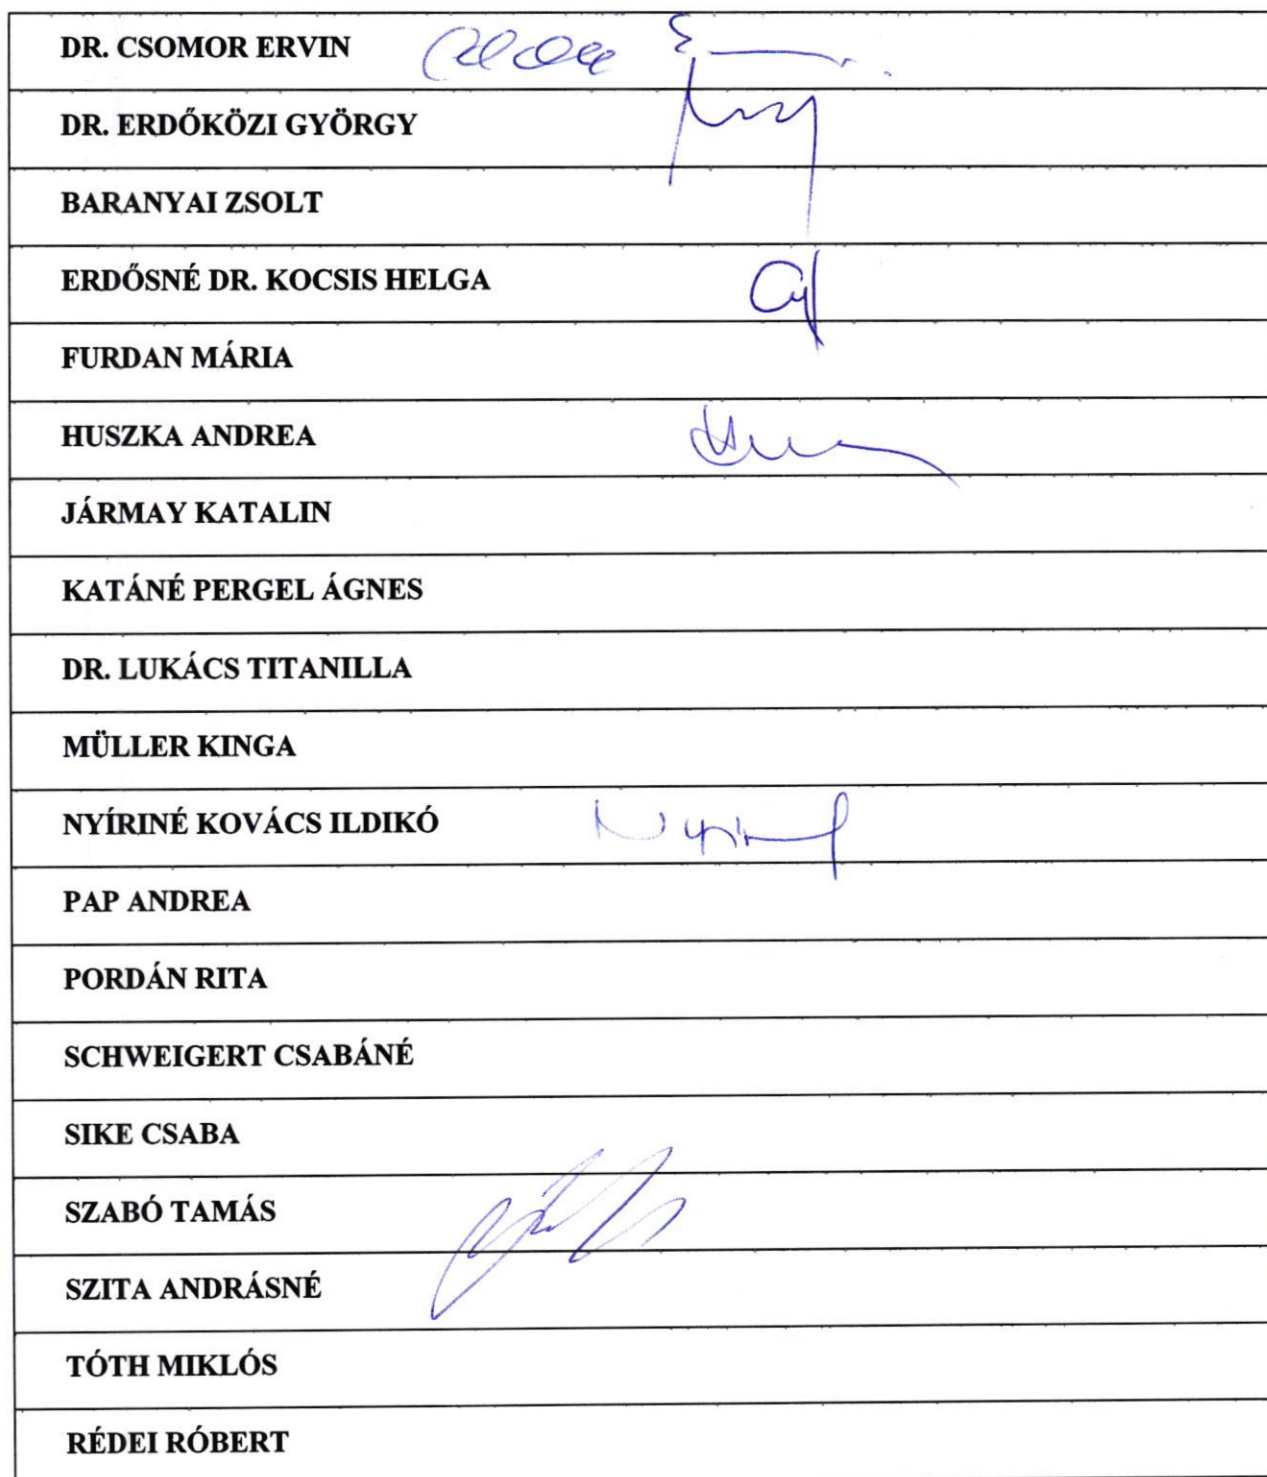 DR. CSOMOR ERVIN
DR. ERDŐKÖZI GYÖRGY
BARANYAI ZSOLT
ERDŐSNÉ DR. KOCSIS HELGA
FURDAN MÁRIA
HUSZKA ANDREA
JÁRMAY KATALIN
KATÁNÉ PERGEL ÁGNES
DR. LUKÁCS TITANILLA
MÜLLER KINGA
NYÍRINÉ KOVÁCS ILDIKÓ
PAP ANDREA
PORDÁN RITA
SCHWEIGERT CSABÁNÉ
SIKE CSABA
SZABÓ TAMÁS
SZITA ANDRÁSNÉ
TÓTH MIKLÓS
RÉDEI RÓBERT